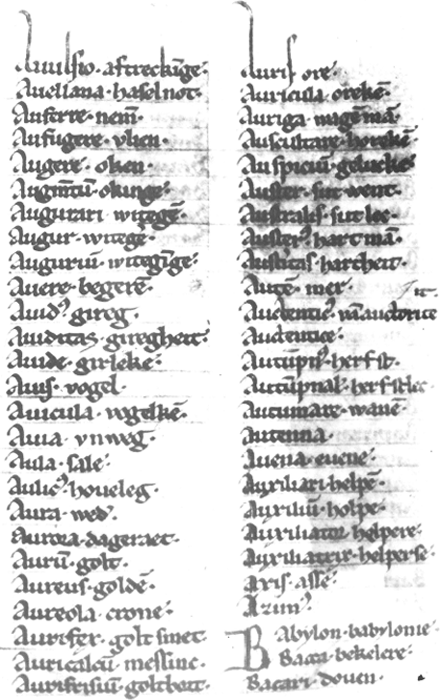 Auulsio· aftreckīge·
Auellana· haselnot·
Auferre· nem̄·
Aufugere· vlien·
Augere· oken·
Augm̄tū· okinge·
Augurari· witegē·
Augur· witege·
Auguriū· witegīge·
Auere· begerē·
Auidꝰ· gireg·
Auiditas· giregheit·
Auide· girleke·
Auis· vogel·
Auicula· vogelkē·
Auia· vnweg·
Aula· sale·
Aulicꝰ· houeleg·
Aura· wedꝰ·
Aurora· dageraet·
Aurū· golt·
Aureus· goldē·
Aureola· crone·
Aurifer· golt smet·
Auricalcū· messinc·
Aurifrisiū· goltbort·
Auris· ore·
Auricula· orekē·
Auriga· wagēmā·
Auscultare· horekē·
Auspiciū· gelucke·
Auster· sut went·
Australis· sut lec·
Austerꝰ· hart mā·
Austitas· hartheit·
Autē· mer·
Autenticꝰ· vā auctorite
Autentice·
Autūpnꝰ· herfst·
Autūpnal· herfstlec·
Autumare· wanē·
Antenna·
Auena· euene·
Auxiliari· helpē·
Auxiliū· holpe·
Auxiliator· helpere·
Auxiliatrix· helperse·
Axis· asse·
Azimꝰ·
Babylon· babylonie·
Bacca· bekelere·
Bacari· douen·